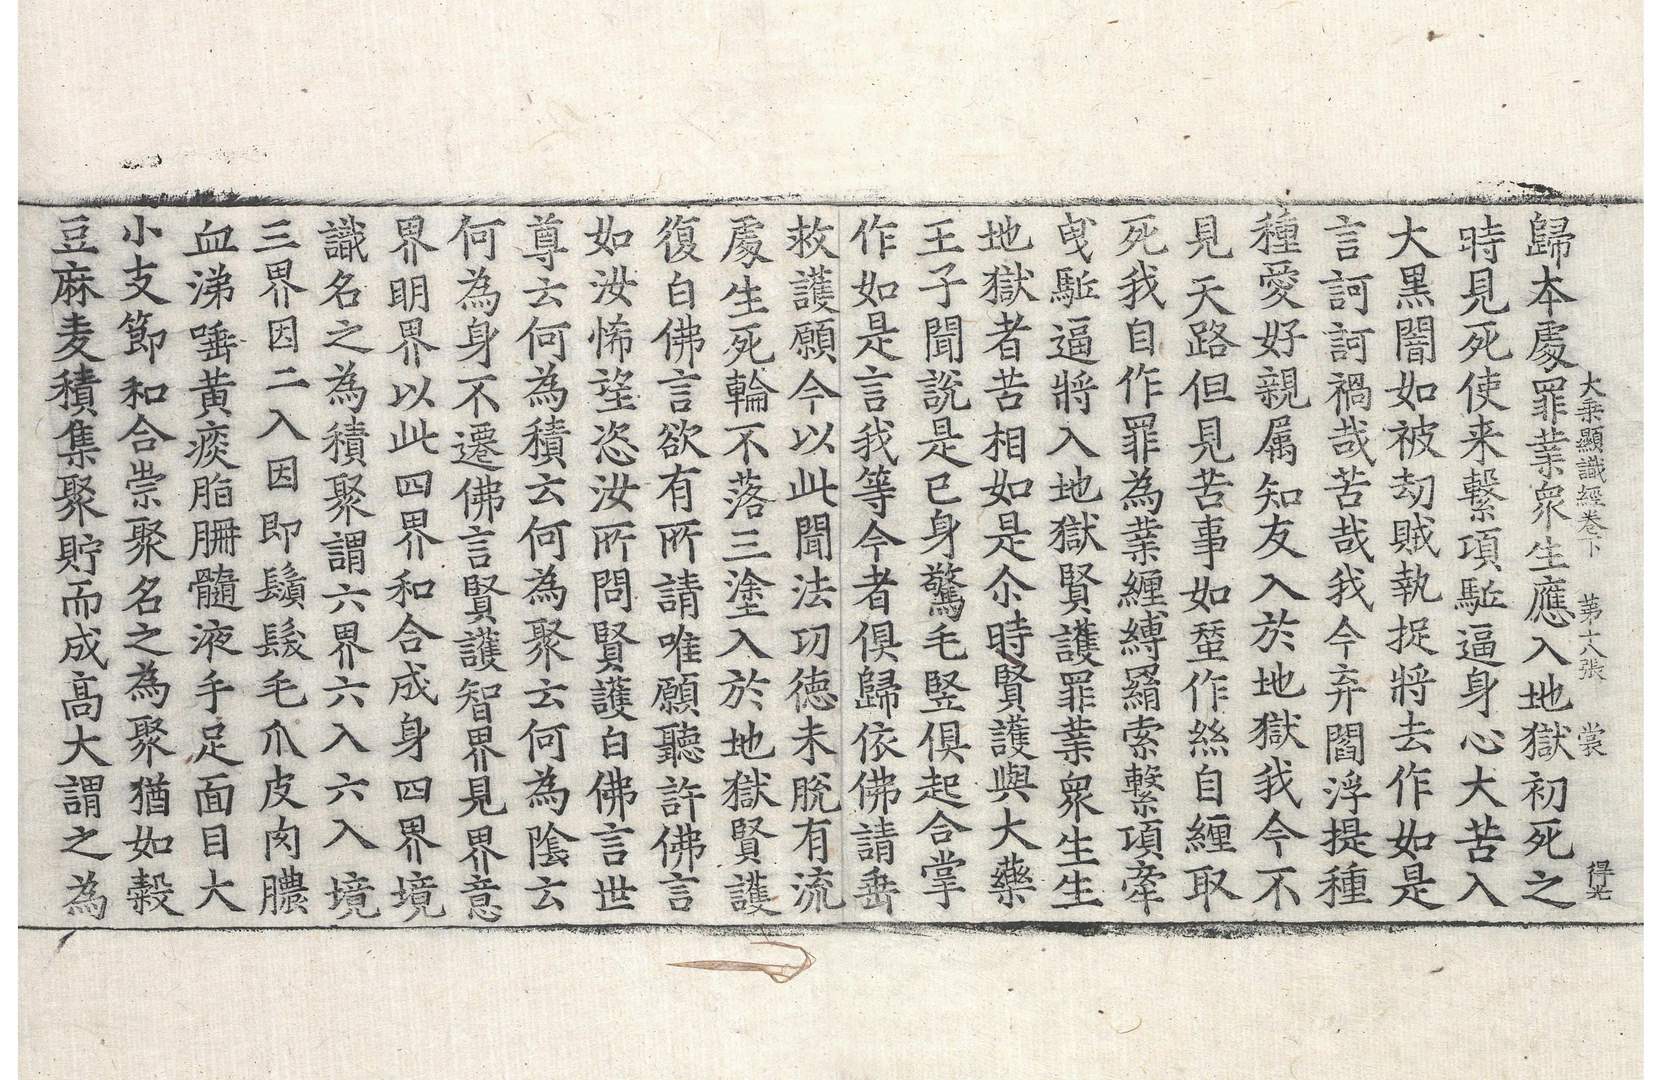 大乘顯識經卷下　第十八張　裳　得光
歸本處罪業衆生應入地獄初死之
時見死使来繫項駈逼身心大苦入
大黒闇如被劫賊執捉將去作如是
言訶訶禍哉苦哉我今弃閻浮提種
種愛好親属知友入於地獄我今不
見天路但見苦事如蚕作絲自纏取
死我自作罪為業纏縛羂索繫項牽
曳駈逼將入地獄賢護罪業衆生生
地獄者苦相如是尒時賢護與大藥
王子聞說是已身驚毛竪俱起合掌
作如是言我等今者俱歸依佛請垂
救護願今以此聞法功徳未脫有流
處生死輪不落三塗入於地獄賢護
復白佛言欲有所請唯願聽許佛言
如汝悕望恣汝所問賢護白佛言世
尊云何為積云何為聚云何為陰云
何為身不遷佛言賢護智界見界意
界明界以此四界和合成身四界境
識名之為積聚謂六界六入六入境
三界因二入因即鬚髮毛爪皮肉膿
血涕唾黄痰脂𦙱髓液手足面目大
小支節和合崇聚名之為聚猶如穀
豆麻麦積集聚貯而成髙大謂之為